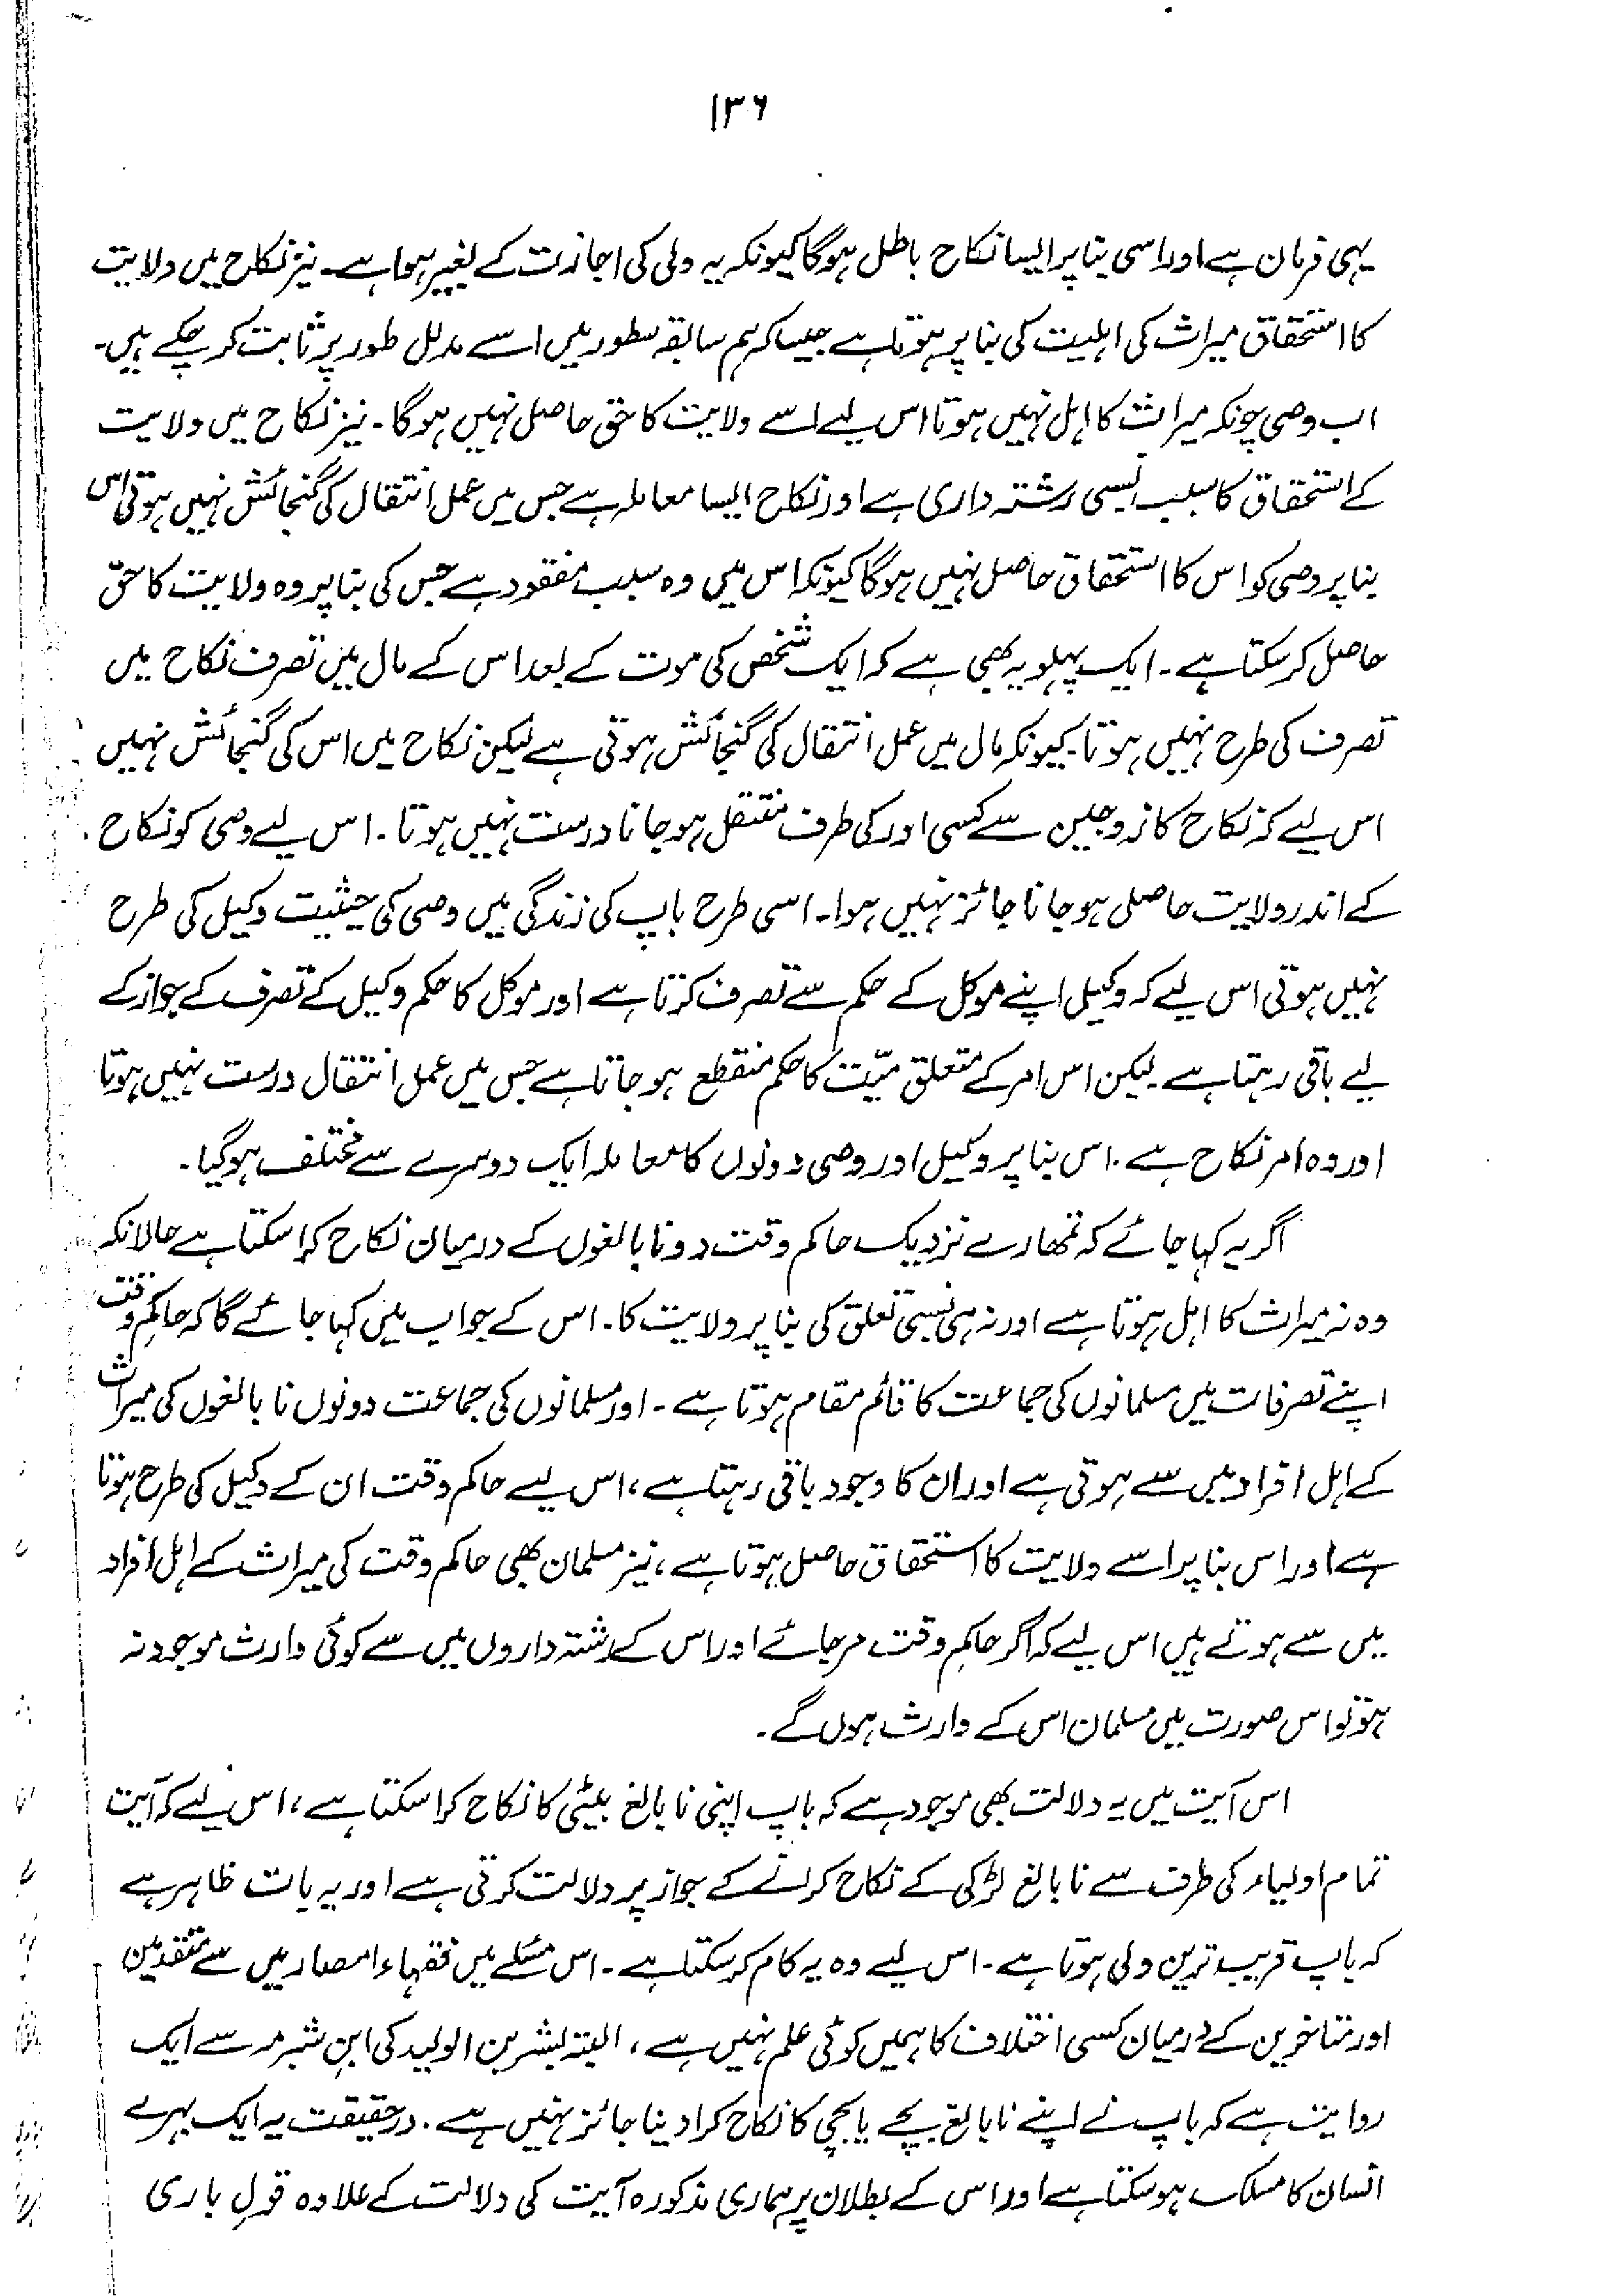 ۱۳۶
یہی فرمان ہے اور اسی بنا پر ایسا نکاح باطل ہوگا کیونکہ یہ ولی کی اجازت کے بغیر ہوا ہے۔ نیز نکاح میں ولایت
کا استحقاق میراث کی اہلیت کی بنا پر ہوتا ہے جیسا کہ ہم سابقہ سطور میں اسے مدلل طور پر ثابت کر چکے ہیں۔
اب وصی چونکہ میراث کا اہل نہیں ہوتا اس لیے اسے ولایت کا حق حاصل نہیں ہوگا۔ نیز نکاح میں ولایت
کے استحقاق کا سبب نسبی رشتہ داری ہے اور نکاح ایسا معاملہ ہے جس میں عمل انتقال کی گنجائش نہیں ہوتی اس
بنا پر وصی کو اس کا استحقاق حاصل نہیں ہوگا کیونکہ اس میں وہ سبب مفقود ہے جس کی بنا پر وہ ولایت کا حق
حاصل کر سکتا ہے۔ ایک پہلو یہ بھی ہے کہ ایک شخص کی موت کے بعد اس کے مال میں تصرف نکاح میں
تصرف کی طرح نہیں ہوتا۔ کیونکہ مال میں عمل انتقال کی گنجائش ہوتی ہے لیکن نکاح میں اس کی گنجائش نہیں
اس لیے کہ نکاح کا زوجین سے کسی اور کی طرف منتقل ہو جانا درست نہیں ہوتا۔ اس لیے وصی کو نکاح
کے اندر ولایت حاصل ہو جانا جائز نہیں ہوا۔ اسی طرح باپ کی زندگی میں وصی کی حیثیت وکیل کی طرح
نہیں ہوتی اس لیے کہ وکیل اپنے موکل کے حکم سے تصرف کرتا ہے اور موکل کا حکم وکیل کے تصرف کے جواز کے
لیے باقی رہتا ہے لیکن اس امر کے متعلق میّت کا حکم منقطع ہو جاتا ہے جس میں عمل انتقال درست نہیں ہوتا
اور وہ امر نکاح ہے۔ اس بنا پر وکیل اور وصی دونوں کا معاملہ ایک دوسرے سے مختلف ہوگیا۔
اگر یہ کہا جائے کہ تمھارے نزدیک حاکم وقت دو نابالغوں کے درمیان نکاح کرا سکتا ہے حالانکہ
وہ نہ میراث کا اہل ہوتا ہے اور نہ ہی نسبی تعلق کی بنا پر ولایت کا۔ اس کے جواب میں کہا جائے گا کہ حاکم وقت
اپنے تصرفات میں مسلمانوں کی جماعت کا قائم مقام ہوتا ہے۔ اور مسلمانوں کی جماعت دونوں نابالغوں کی میراث
کے اہل افراد میں سے ہوتی ہے اور ان کا وجود باقی رہتا ہے، اس لیے حاکم وقت ان کے وکیل کی طرح ہوتا
ہے اور اس بنا پر اسے ولایت کا استحقاق حاصل ہوتا ہے، نیز مسلمان بھی حاکم وقت کی میراث کے اہل افراد
میں سے ہوتے ہیں اس لیے کہ اگر حاکم وقت مر جائے اور اس کے رشتہ داروں میں سے کوئی وارث موجود نہ
ہو تو اس صورت میں مسلمان اس کے وارث ہوں گے۔
اس آیت میں یہ دلالت بھی موجود ہے کہ باپ اپنی نابالغ بیٹی کا نکاح کرا سکتا ہے، اس لیے کہ آیت
تمام اولیاء کی طرف سے نابالغ لڑکی کے نکاح کرانے کے جواز پر دلالت کرتی ہے اور یہ بات ظاہر ہے
کہ باپ قریب ترین ولی ہوتا ہے۔ اس لیے وہ یہ کام کر سکتا ہے۔ اس مسئلے میں فقہاء امصار میں سے متقدمین
اور متاخرین کے درمیان کسی اختلاف کا ہمیں کوئی علم نہیں ہے، البتہ بشر بن الولید کی ابن شبرمہ سے ایک
روایت ہے کہ باپ نے اپنے نابالغ بچے یا بچی کا نکاح کرا دینا جائز نہیں ہے۔ درحقیقت یہ ایک بہرے
انسان کا مسلک ہو سکتا ہے اور اس کے بطلان پر ہماری مذکورہ آیت کی دلالت کے علاوہ قولِ باری